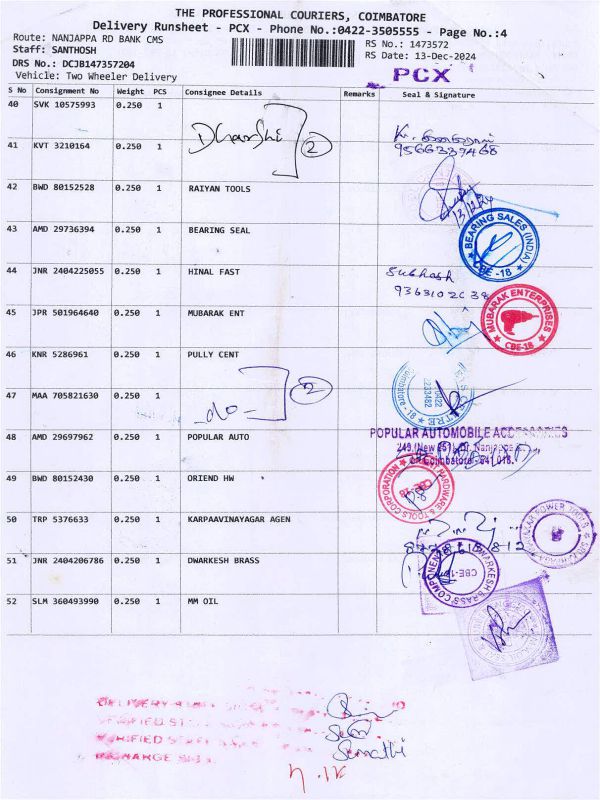 THE PROFESSIONAL COURIERS, COIMBATORE
Delivery Runsheet - PCX - Phone No.:0422-3505555 - Page No.:4
Route: NANJAPPA RD BANK CMS
Staff: SANTHOSH
DRS No.: DCJB147357204
Vehicle: Two Wheeler Delivery
RS No.: 1473572
RS Date: 13-Dec-2024
PCX
S No Consignment No Weight PCS Consignee Details Remarks Seal & Signature
40 SVK 10575993 0.250 1
Dharshi 2
9566339468
41 KVT 3210164 0.250 1
42 BWD 80152528 0.250 1 RAIYAN TOOLS
13/12/24
43 AMD 29736394 0.250 1 BEARING SEAL
BEARING SALES (INDIA)
CBE-18
44 JNR 2404225055 0.250 1 HINAL FAST
Subhash
45 JPR 501964640 0.250 1 MUBARAK ENT
MUBARAK ENTERPRISES
CBE-18
46 KNR 5286961 0.250 1 PULLY CENT
47 MAA 705821630 0.250 1
-do- 2
0422
2233482
48 AMD 29697962 0.250 1 POPULAR AUTO
POPULAR AUTOMOBILE ACCESSORIES
49 BWD 80152430 0.250 1 ORIEND HW
HARDWARE & TOOLS CORPORATION
50 TRP 5376633 0.250 1 KARPAAVINAYAGAR AGEN
51 JNR 2404206786 0.250 1 DWARKESH BRASS
DWARKESH BRASS COMPONENTS
CBE-18
52 SLM 360493990 0.250 1 MM OIL
Sumathi